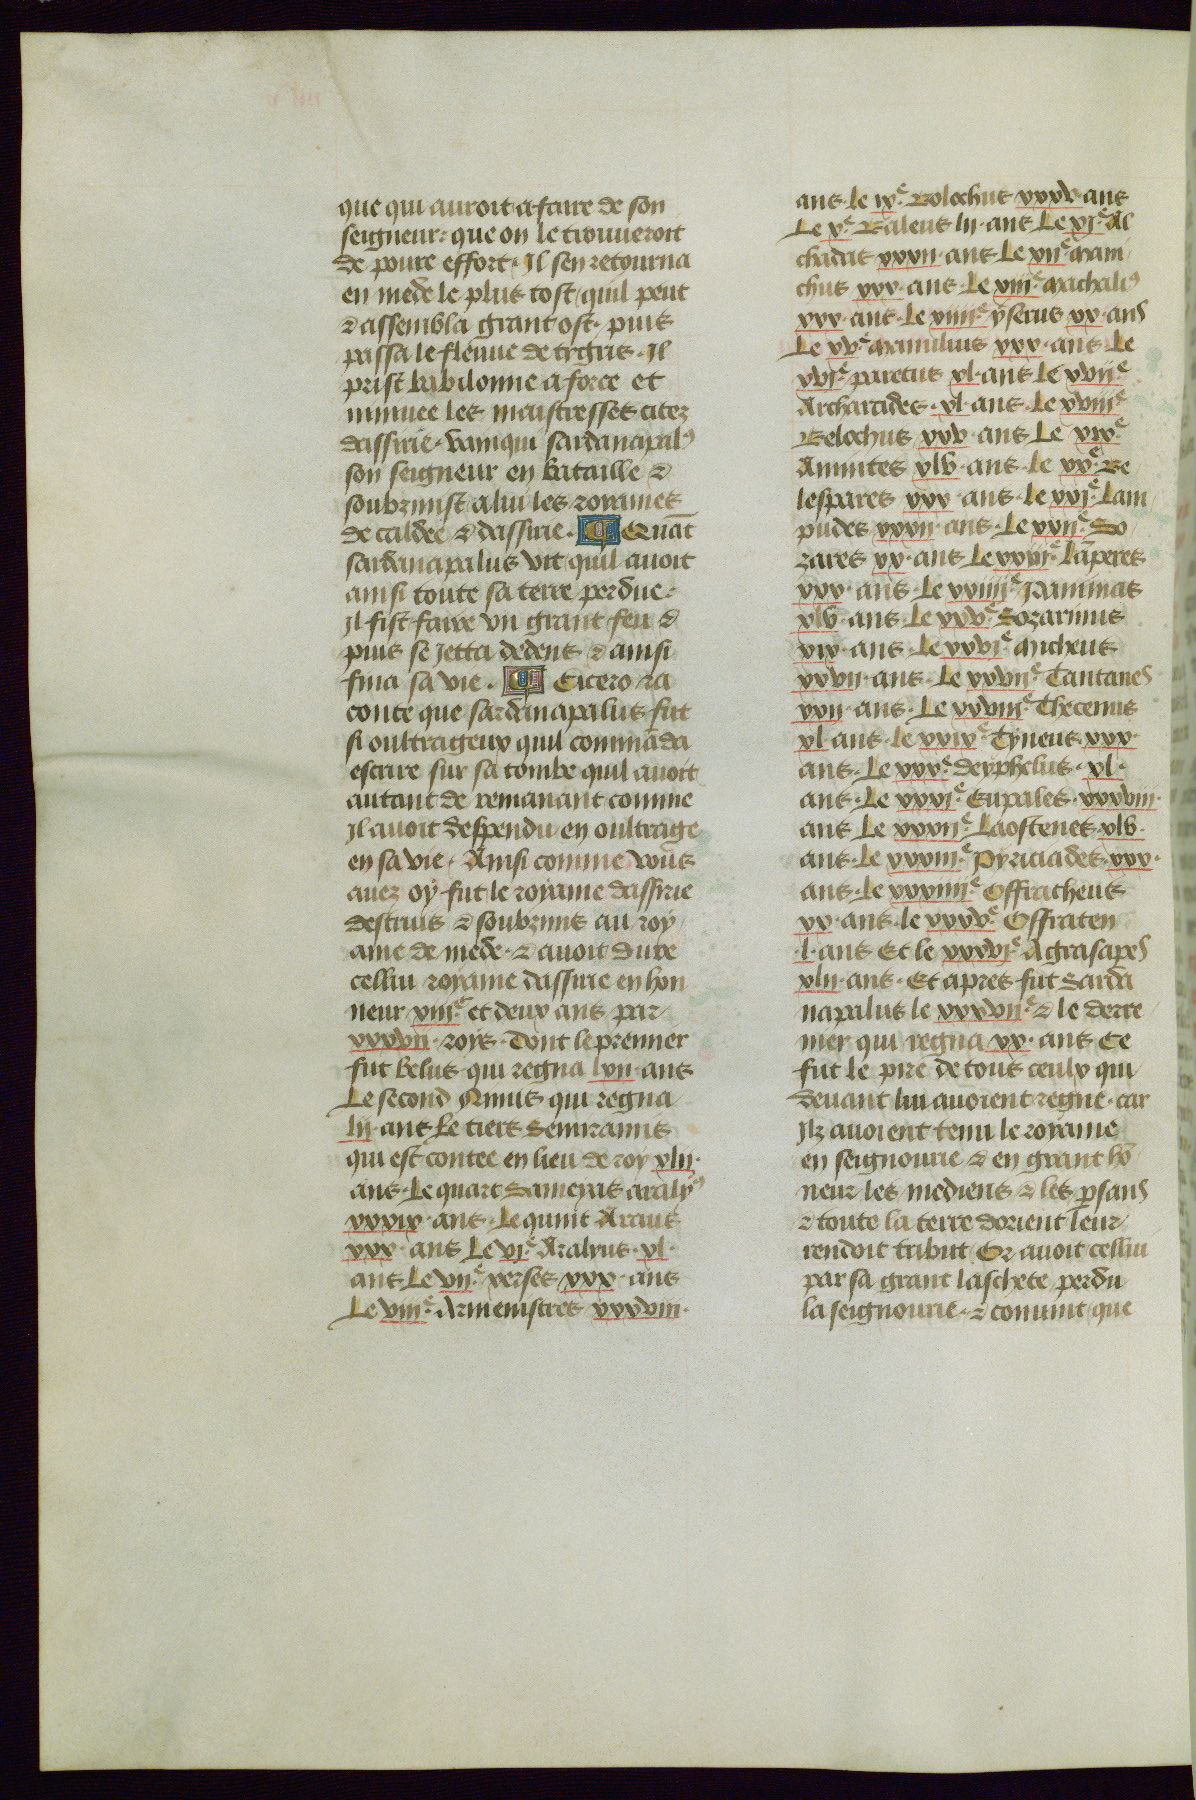 que qui auroit a faire de son
seigneur: que on le trouueroit
de poure effort. Il sen retourna
en mede le plus tost quil peut
⁊ assembla grant ost. puis
passa le fleuue de tygris. Il
prist babilonne a force et
niniuee les maistresses citez
dassirie. Vainqui sardanapalꝰ
son seigneur en bataille ⁊
soubzmist a lui les royames
de caldee ⁊ dassirie. ¶ Quāt
sardanapalus vit quil auoit
ainsi toute sa terre perdue:
Il fist faire vn grant feu ⁊
puis se jetta dedens ⁊ ainsi
fina sa vie. ¶ Cicero ra
conte que sardanapalus fut
si oultrageux quil commāda
escrire sur sa tombe quil auoit
autant de remanant comme
Il auoit despendu en oultrage
en sa vie. Ainsi comme vous
auez oÿ fut le royame dassirie
destruis ⁊ soubzmis au roy
ame de mede. ⁊ auoit dure
cellui royame dassirie en hon
neur xiiiᶜ et deux ans par
xxxvii. roys. Dont le premier
fut belus qui regna lxii. ans
Le second Ninus qui regna
lii. ans Le tiers Semiramis
qui est contee en lieu de roy xlii.
ans. Le quart Sameyas aralyꝰ
xxxix. ans. Le quint Arrius
xxx. ans Le vi.ᵉ Aralyus. xl.
ans Le vii.ᵉ xerses xxx. ans
Le viii.ᵉ Armenistres xxxviii.
ans. Le ix.ᵉ Bolochus xxxv. ans
Le x.ᵉ Baleus lii. ans Le xi.ᵉ Al
chadas xxxii. ans Le xii.ᵉ Mam
chus xxx. ans. Le xiii.ᵉ Machalꝰ
xxx. ans. Le xiiii.ᵉ ÿserus xx. ans
Le xv.ᵉ Mamilius xxx. ans Le
xvi.ᵉ paretus xl. ans Le xvii.ᵉ
Archarcides. xl. ans. Le xviii.ᵉ
Belochus xxv. ans Le xix.ᵉ
Amintes xlv. ans. Le xx.ᵉ Be
lespares xxx. ans. Le xxi.ᵉ Lam
pudes xxxii. ans. Le xxii.ᵉ So
zares xx. ans Le xxiii.ᵉ Lāperes
xxx. ans. Le xxiiii.ᵉ Paminas
xlv. ans. Le xxv.ᵉ Sozarmus
xix. ans. Le xxvi.ᵉ Micheus
xxvii. ans. Le xxvii.ᵉ Tantanes
xxii. ans. Le xxviii.ᵉ Thecenus
xl. ans. Le xxix.ᵉ Tyneus xxx.
ans. Le xxx.ᵉ Deÿphelus. xl.
ans. Le xxxi.ᵉ Eupales. xxxviii.
ans Le xxxii.ᵉ Laostenes xlv.
ans. Le xxxiii.ᵉ Pyriciades. xxx.
ans. Le xxxiiii.ᵉ Offracheus
xx. ans. le xxxv.ᵉ Offraten
.l. ans Et le xxxvi.ᵉ Agrasapes
xlii. ans. Et apres fut Sarda
napalus le xxxvii.ᵉ ⁊ le derre
nier qui regna xx. ans Ce
fut le pire de tous ceulx qui
deuant lui auoient regne. car
Ilz auoient tenu le royame
en seignourie ⁊ en grant hō
neur. les mediens ⁊ les ꝑsans
⁊ toute la terre dorient leur
rendoit tribut Or auoit cellui
par sa grant laschete perdu
la seignourie. ⁊ conuint que